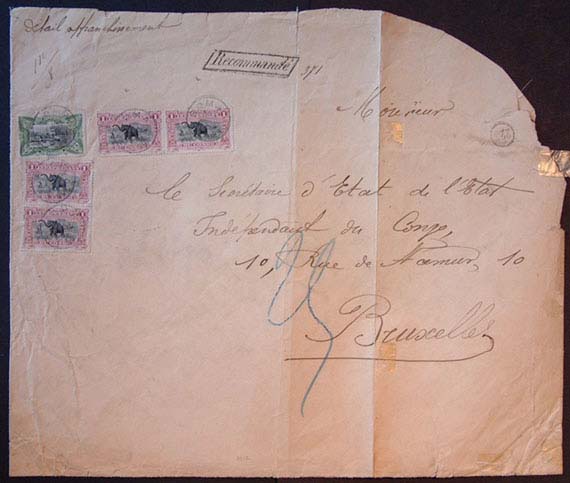 Détail affranchissement
Recommandé
371
Monsieur
le Secrétaire d'Etat de l'Etat
Indépendant du Congo,
10, Rue de Namur, 10
Bruxelles